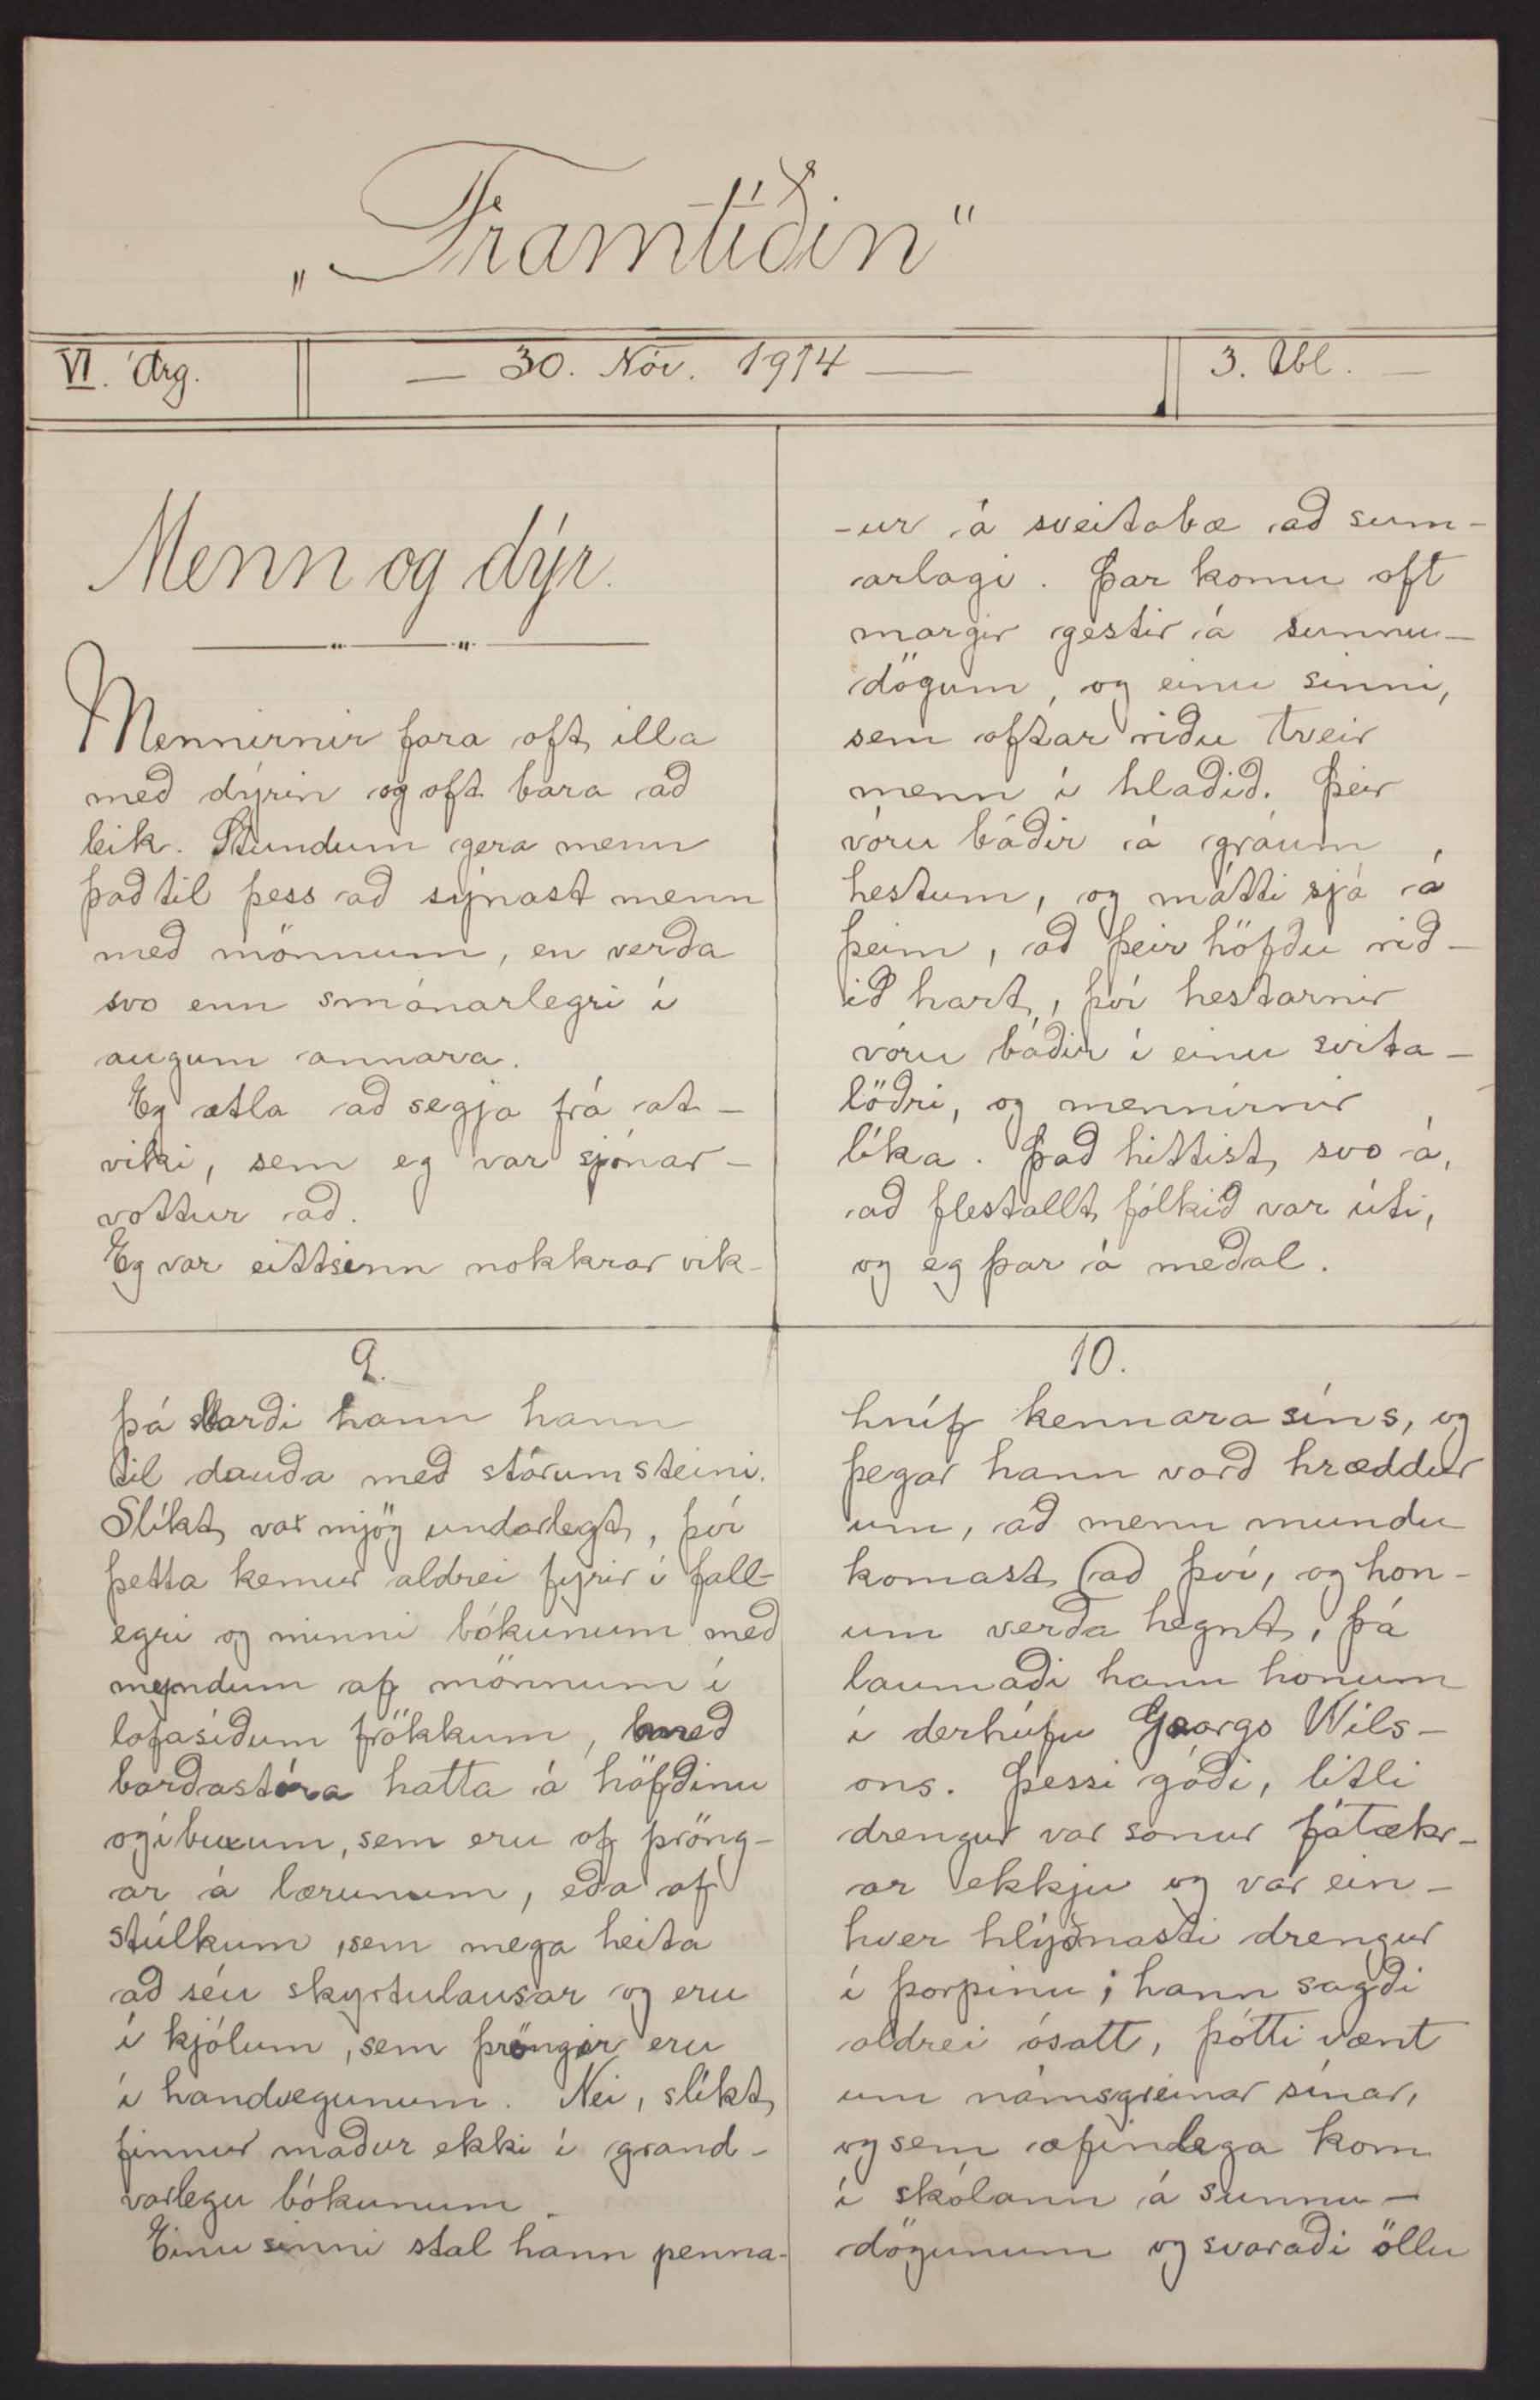 „Framtíðin“
VI. Árg.
— 30. Nóv. 1914 —
3. Tbl. —
Menn og dýr.
Mennirnir fara oft illa
með dýrin og oft bara að
leik. Stundum gera menn
það til þess að sýnast menn
með mönnum, en verða
svo enn smánarlegri í
augum annara.
Eg ætla að segja frá at-
viki, sem eg var sjónar-
vottur að.
Eg var eittsinn nokkrar vik-
-ur á sveitabæ að sum-
arlagi. Þar komu oft
margir gestir á sunnu-
dögum, og einu sinni,
sem oftar riðu tveir
menn í hlaðið. Þeir
vóru báðir á gráum
hestum, og mátti sjá á
þeim, að þeir höfðu rið-
ið hart, því hestarnir
vóru báðir í einu svita-
löðri, og mennirnir
líka. Það hittist svo á,
að flestallt fólkið var úti,
og eg þar á meðal.
9.
þá barði hann hann
til dauða með stórum steini.
Slíkt var mjög undarlegt, því
þetta kemur aldrei fyrir í fall-
egri og minni bókunum með
myndum af mönnum í
lafasíðum frökkum, með
barðastóra hatta á höfðinu
og í buxum, sem eru of þröng-
ar á lærunum, eða af
stúlkum, sem mega heita
að séu skyrtulausar og eru
í kjólum, sem þröngir eru
í handvegunum. Nei, slíkt
finnur maður ekki í grand-
varlegu bókunum.
Einu sinni stal hann penna-
10.
hníf kennara síns, og
þegar hann varð hræddur
um, að menn mundu
komast að því, og hon-
um verða hegnt, þá
laumaði hann honum
í derhúfu Georgs Wils-
ons. Þessi góði, litli
drengur var sonur fátækr-
ar ekkju og var ein-
hver hlýðnasti drengur
í þorpinu; hann sagði
aldrei ósatt, þótti vænt
um námsgreinar sínar,
og sem æfinlega kom
í skólann á sunnu-
dögunum og svaraði öllu